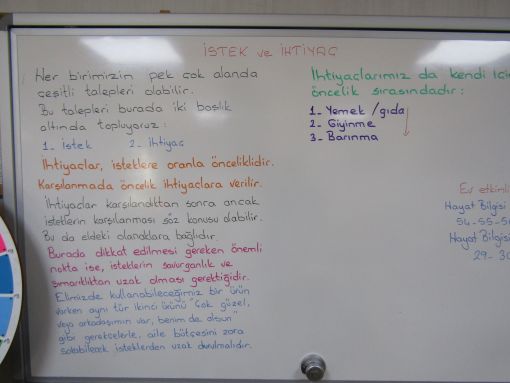 İSTEK ve İHTİYAÇ
Her birimizin pek çok alanda
çeşitli talepleri olabilir.
Bu talepleri burada iki başlık
altında topluyoruz:
1- İstek 2- İhtiyaç
İhtiyaçlar, isteklere oranla önceliklidir.
Karşılanmada öncelik ihtiyaçlara verilir.
İhtiyaçlar karşılandıktan sonra ancak
isteklerin karşılanması söz konusu olabilir.
Bu da eldeki olanaklara bağlıdır.
Burada dikkat edilmesi gereken önemli
nokta ise, isteklerin savurganlık ve
şımarıklıktan uzak olması gerektiğidir.
Elimizde kullanabileceğimiz bir ürün
varken aynı tür ikinci ürünü "çok güzel,
veya arkadaşımın var, benim de olsun"
gibi gerekçelerle, aile bütçesini zora
sokabilecek isteklerden uzak durulmalıdır.
İhtiyaçlarımız da kendi içi
öncelik sırasındadır:
1- Yemek / gıda
2- Giyinme
3- Barınma
Ev etkinli
Hayat Bilgisi
54-55-56
Hayat Bilgisi
29-30